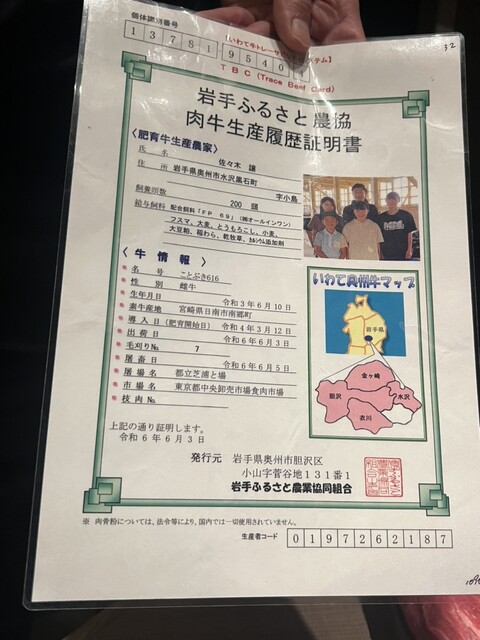 個体識別番号
【いわて牛トレーサ
ステム】
1 3 7 8 1 9 5 4 0
32
TBC (Trace Beef Card)
岩手ふるさと農協
肉牛生産履歴証明書
〈肥育牛生産農家〉
氏 名 佐々木 譲
住 所 岩手県奥州市水沢黒石町
字小島
飼養頭数 200 頭
給与飼料 配合飼料「FP 69」(㈱オールインワン)
フスマ、大麦、とうもろこし、小麦、
大豆粕、稲わら、乾牧草、カルシウム添加剤
〈牛 情 報〉
* 名 号 ことぶき616
* 性 別 雌牛
* 生年月日 令和3年6月10日
* 素牛産地 宮崎県日南市南郷町
* 導入日(肥育開始日) 令和4年3月12日
* 出荷日 令和6年6月3日
* 毛刈り№ 7
* 屠畜日 令和6年6月5日
* 屠場名 都立芝浦と場
* 市場名 東京都中央卸売市場食肉市場
* 枝肉№
いわて奥州牛マップ
岩手県
金ヶ崎
胆沢
水沢
衣川
上記の通り証明します。
令和6年6月3日
発行元 岩手県奥州市胆沢区
小山字菅谷地131番1
岩手ふるさと農業協同組合
※ 肉骨粉については、法令等により、国内では一切使用されていません。
生産者コード 0 1 9 7 2 6 2 1 8 7